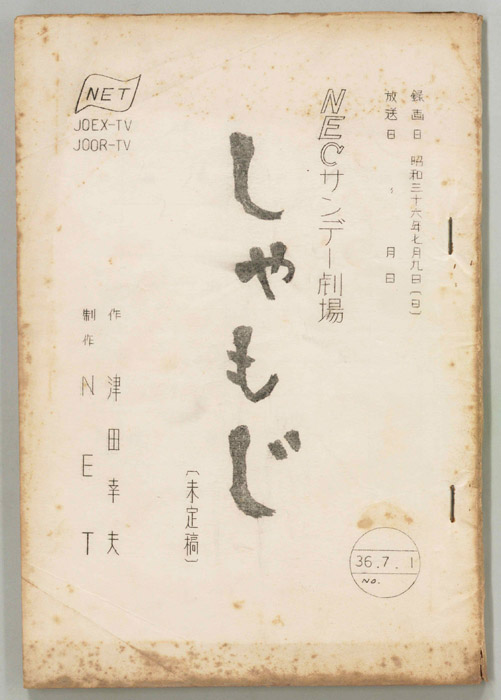 録画日 昭和三十六年七月九日(日)
放送日 月 日
NECサンデー劇場
しゃもじ
(未定稿)
作 津田幸夫
制作 NET
NET
JOEX-TV
JOOR-TV
36.7.1
NO.